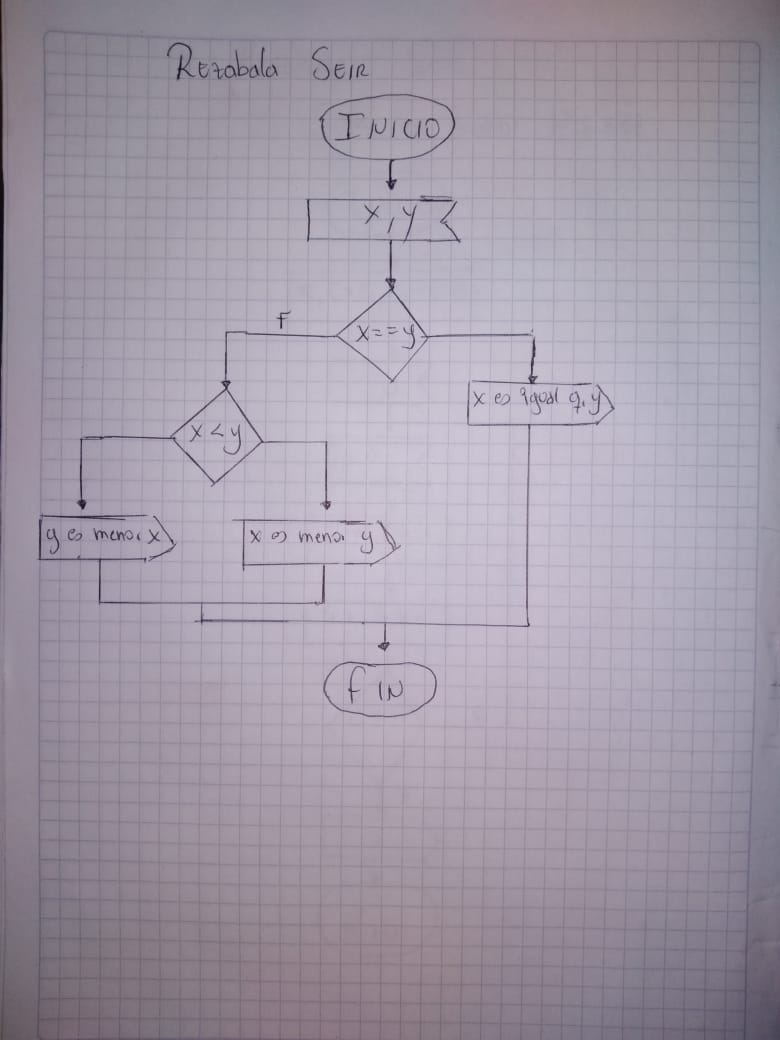 Rezabala Seir
INICIO
x, y
F
x == y
x es igual q. y
x < y
y es menor x
x es menor y
FIN